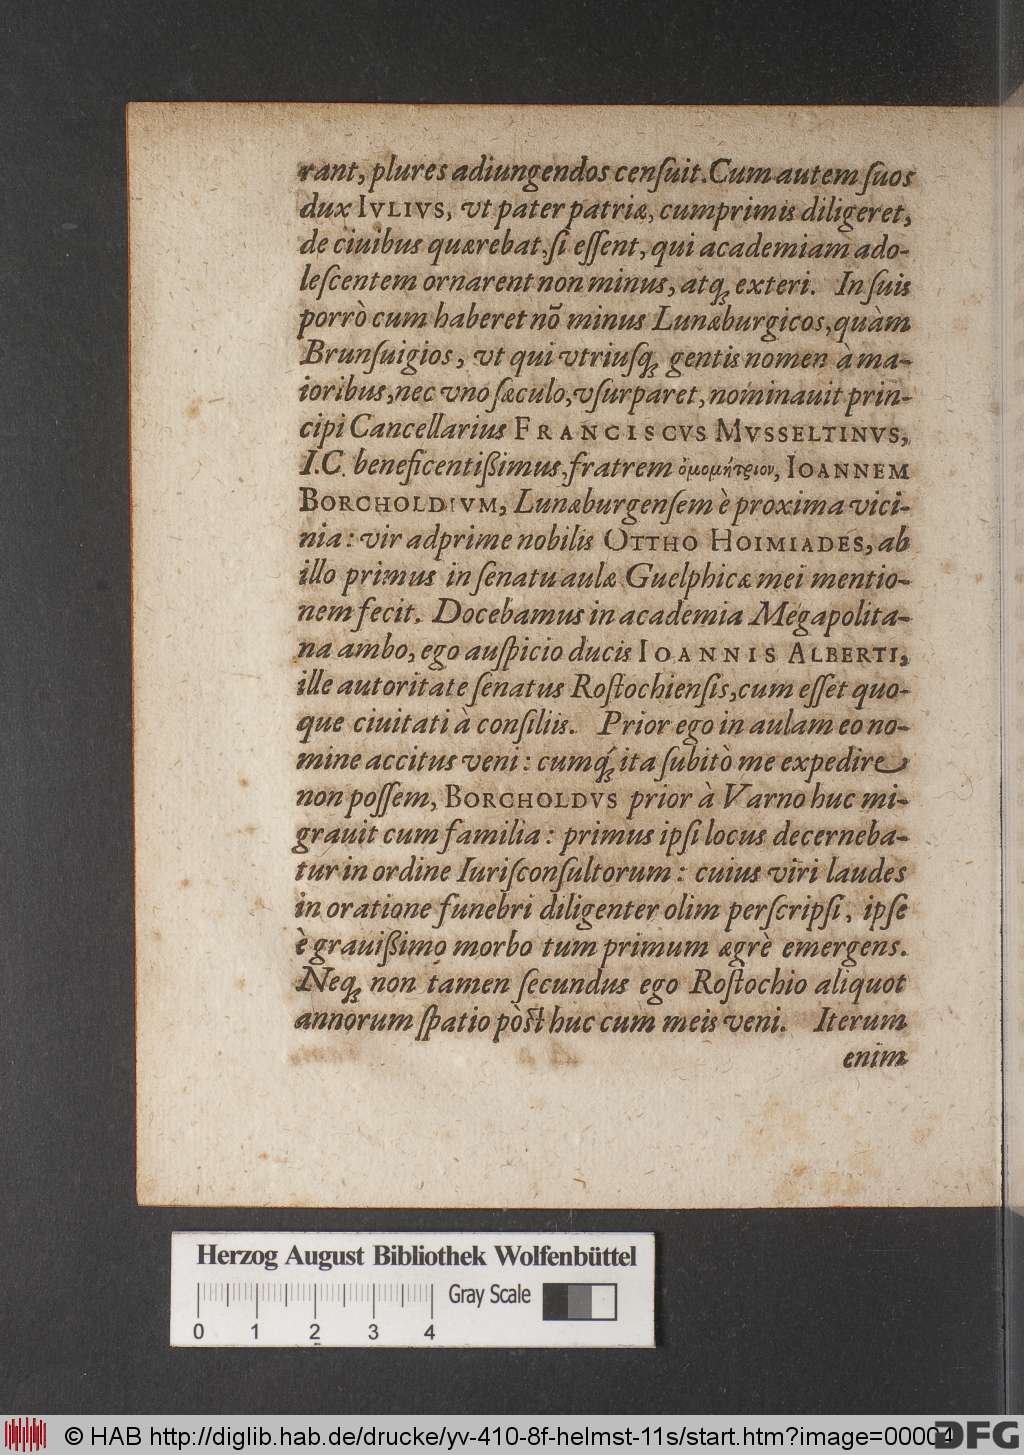 rant, plures adiungendos censuit. Cum autem suos
dux IVLIVS, vt pater patriæ, cumprimis diligeret,
de ciuibus quærebat, si essent, qui academiam ado-
lescentem ornarent non minus, atq; exteri. In suis
porrò cum haberet nō minus Lunæburgicos, quàm
Brunsuigios, vt qui vtriusq; gentis nomen à ma-
ioribus, nec vno sæculo, vsurparet, nominauit prin-
cipi Cancellarius FRANCISCVS MVSSELTINVS,
I.C. beneficentißimus, fratrem ὁμομήτριον, IOANNEM
BORCHOLDIVM, Lunæburgensem è proxima vici-
nia: vir adprime nobilis OTTHO HOIMIADES, ab
illo primus in senatu aulæ Guelphicæ mei mentio-
nem fecit. Docebamus in academia Megapolita-
na ambo, ego auspicio ducis IOANNIS ALBERTI,
ille autoritate senatus Rostochiensis, cum esset quo-
que ciuitati à consiliis. Prior ego in aulam eo no-
mine accitus veni: cumq́; ita subitò me expedire
non possem, BORCHOLDVS prior à Varno huc mi-
grauit cum familia: primus ipsi locus decerneba-
tur in ordine Iurisconsultorum: cuius viri laudes
in oratione funebri diligenter olim perscripsi, ipse
è grauißimo morbo tum primum ægrè emergens.
Neq; non tamen secundus ego Rostochio aliquot
annorum spatio pòst huc cum meis veni. Iterum
enim
Herzog August Bibliothek Wolfenbüttel
Gray Scale
0 1 2 3 4
© HAB http://diglib.hab.de/drucke/yv-410-8f-helmst-11s/start.htm?image=00004
DFG